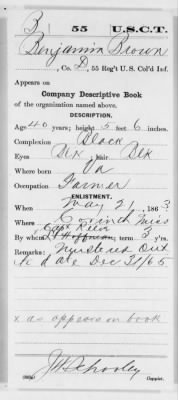 B 55 U.S.C.T.
Benjamin Brown
, Co. D, 55 Reg't U S Col'd Inf.
Appears on
Company Descriptive Book
of the organization named above.
DESCRIPTION.
Age 40 years; height 5 feet 6 inches.
Complexion Black
Eyes Blk; Hair Blk
Where born Va
Occupation Farmer
ENLISTMENT.
When May 21, 1863
Where Corinth Miss
Capt
By whom; term 3 y'rs.
Remarks: Mustered Out
to date Dec 31/65
x as appears on book
Copyist.